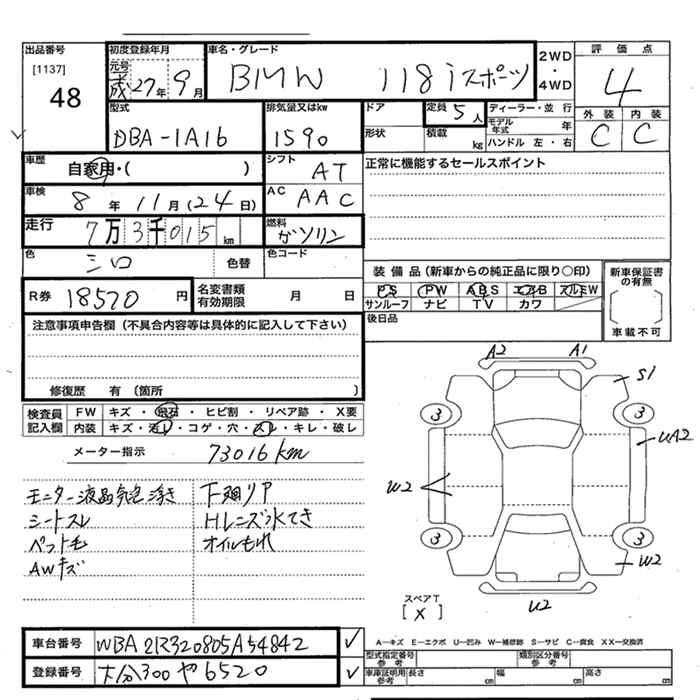 出品番号
[1137]
48
初度登録年月
元号
成 27年 9月
車名・グレード
BMW 118iスポーツ
2WD
・
4WD
評価点
4
外装 内装
C C
型式
DBA-1A16
排気量又はkw
1590
ドア
形状
定員 5人
積載 kg
ディーラー・並行
モデル年式 年
ハンドル 左・右
車歴
自家用・( )
シフト
AT
正常に機能するセールスポイント
車検
8年 11月(24日)
AC
AAC
走行
7万3千015km
燃料
ガソリン
色
シロ
色替
色コード
装備品(新車からの純正品に限り○印)
PS PW ABS エアB アルミW
サンルーフ ナビ TV カワ
新車保証書の有無
車載不可
R券 18570円
名変書類有効期限 月 日
後日品
注意事項申告欄(不具合内容等は具体的に記入して下さい)
修復歴 有(箇所 )
検査員記入欄
FW キズ・飛石・ヒビ割・リペア跡・X要
内装 キズ・汚レ・コゲ・穴・スレ・キレ・破レ
メーター指示 73016km
モニター液晶気泡浮き
シートスレ
ペット毛
AWキズ
下廻りP
Hレンズ水てき
オイルもれ
A2 A1
S1
3 3
UA2
W2
3 3
W2
U2
スペアT
[X]
A-キズ E-エクボ U-凹み W-補修跡 S-サビ C-腐食 XX-交換済
車台番号 WBA2R320805A54842
登録番号 大分300や6520
型式指定番号 参考
類別区分番号 参考
車庫証明用 参考 長さ cm 幅 cm 高さ cm